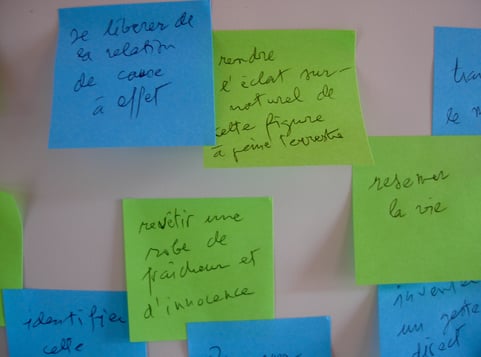 se libérer de
la relation
de cause
à effet
rendre
l'éclat sur-
naturel de
cette figure
à peine terrestre
tra
le
resserrer
la vie
revêtir une
robe de
fraîcheur et
d'innocence
identifier
cette
inventer
un geste
direct